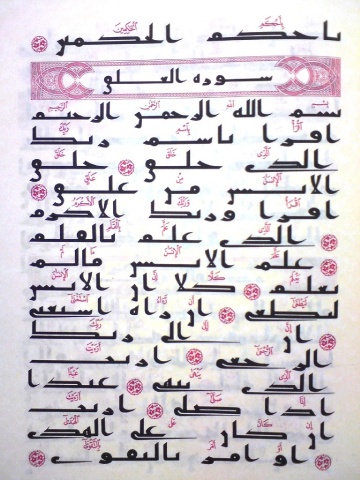 باحكم الحكمين
سورة العلق
بسم الله الرحمن الرحيم
اقرا باسم ربك
الذي خلق خلق
الانسن من علق
اقرا وربك الاكرم
الذي علم بالقلم
علم الانسن مالم
يعلم كلا ان الانسن
ليطغى ان راه استغنى
ان الى ربك
الرجعى اريت
الذي ينهى عبدا
اذا صلى اريت
ان كان على الهدى
او امر بالتقوى